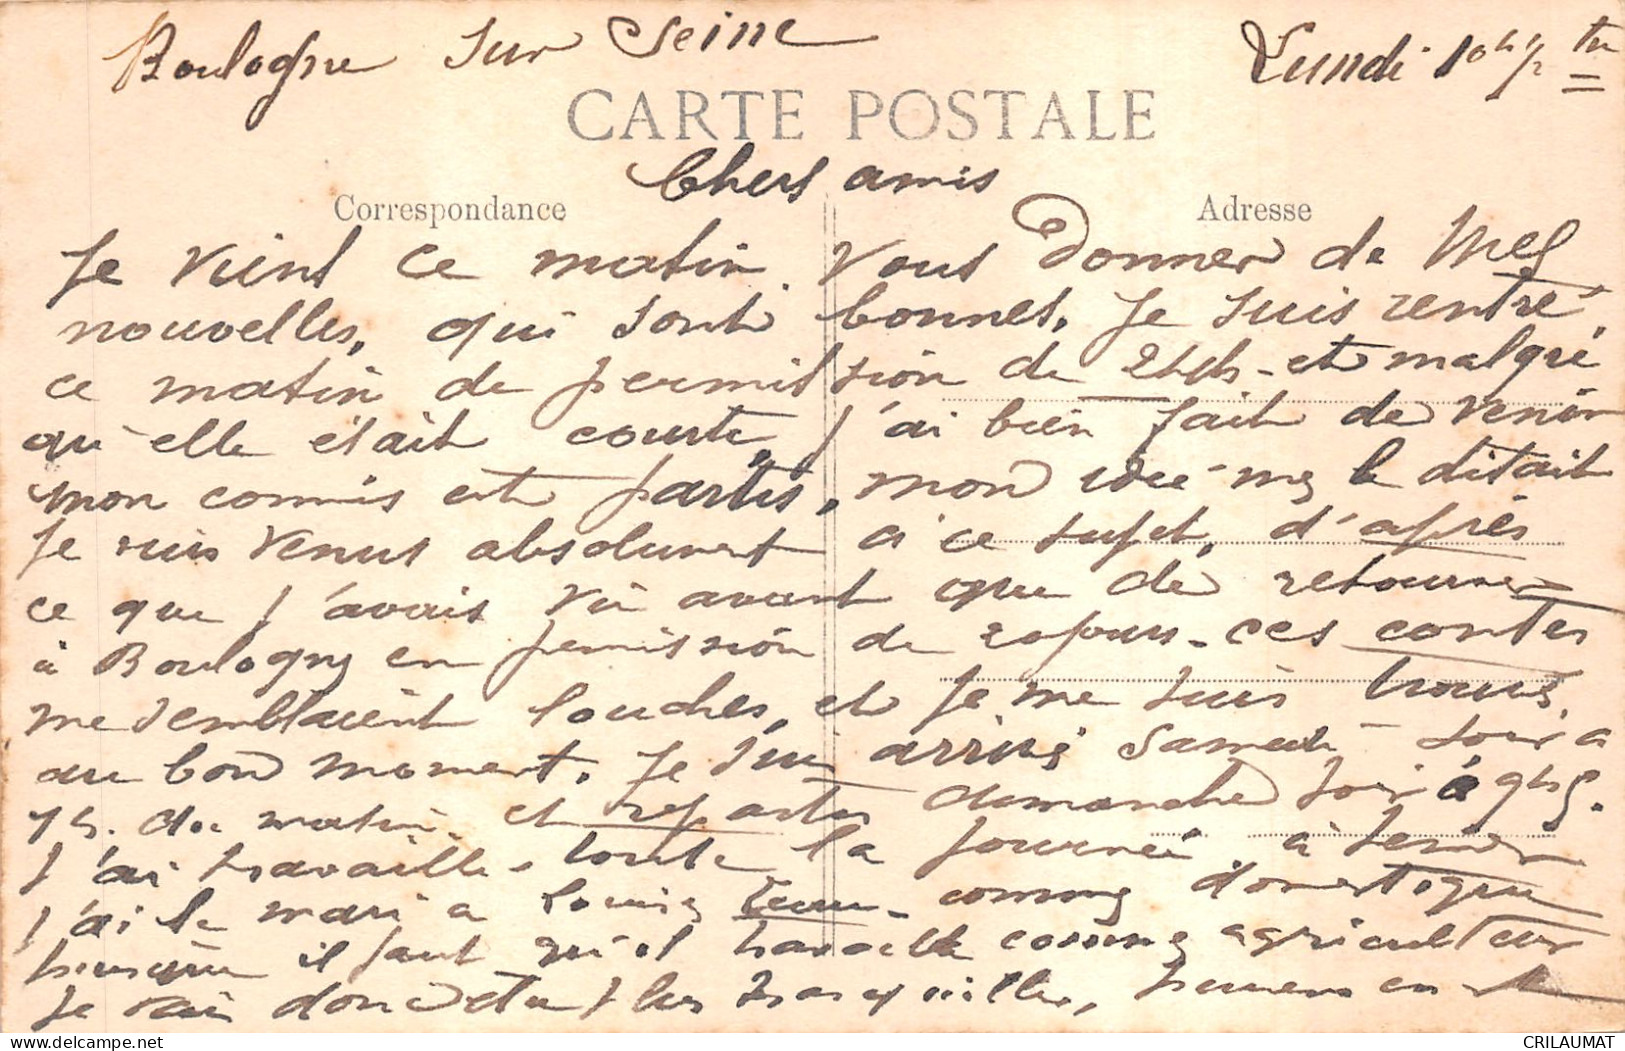 Boulogne sur Seine Lundi 10h 1/2
CARTE POSTALE
Chers amis
Correspondance Adresse
Je vient ce matin vous donner de mes
nouvelles, qui sont bonnes. Je suis rentré
ce matin de permission de 24h - et malgré
qu'elle était courte, j'ai bien fait de venir
mon commis est partis, mon idée me le ditait
Je suis venus absolument à ce sujet, d'après
ce que j'avais vu avant que de retourner
à Boulogne en permission de 20 jours - ces contes
me semblaient louches, et je me suis trouvé
au bon moment. Je suis arrivé Samedi soir a
7h. du matin et repartis demanche soir à 9h
J'ai travaillé toute la journée à semer
j'ai le mari a Louise comme domestique
il faut qu'il travaille comme agriculteur
Je suis donc plus tranquille,
CRILAUMAT